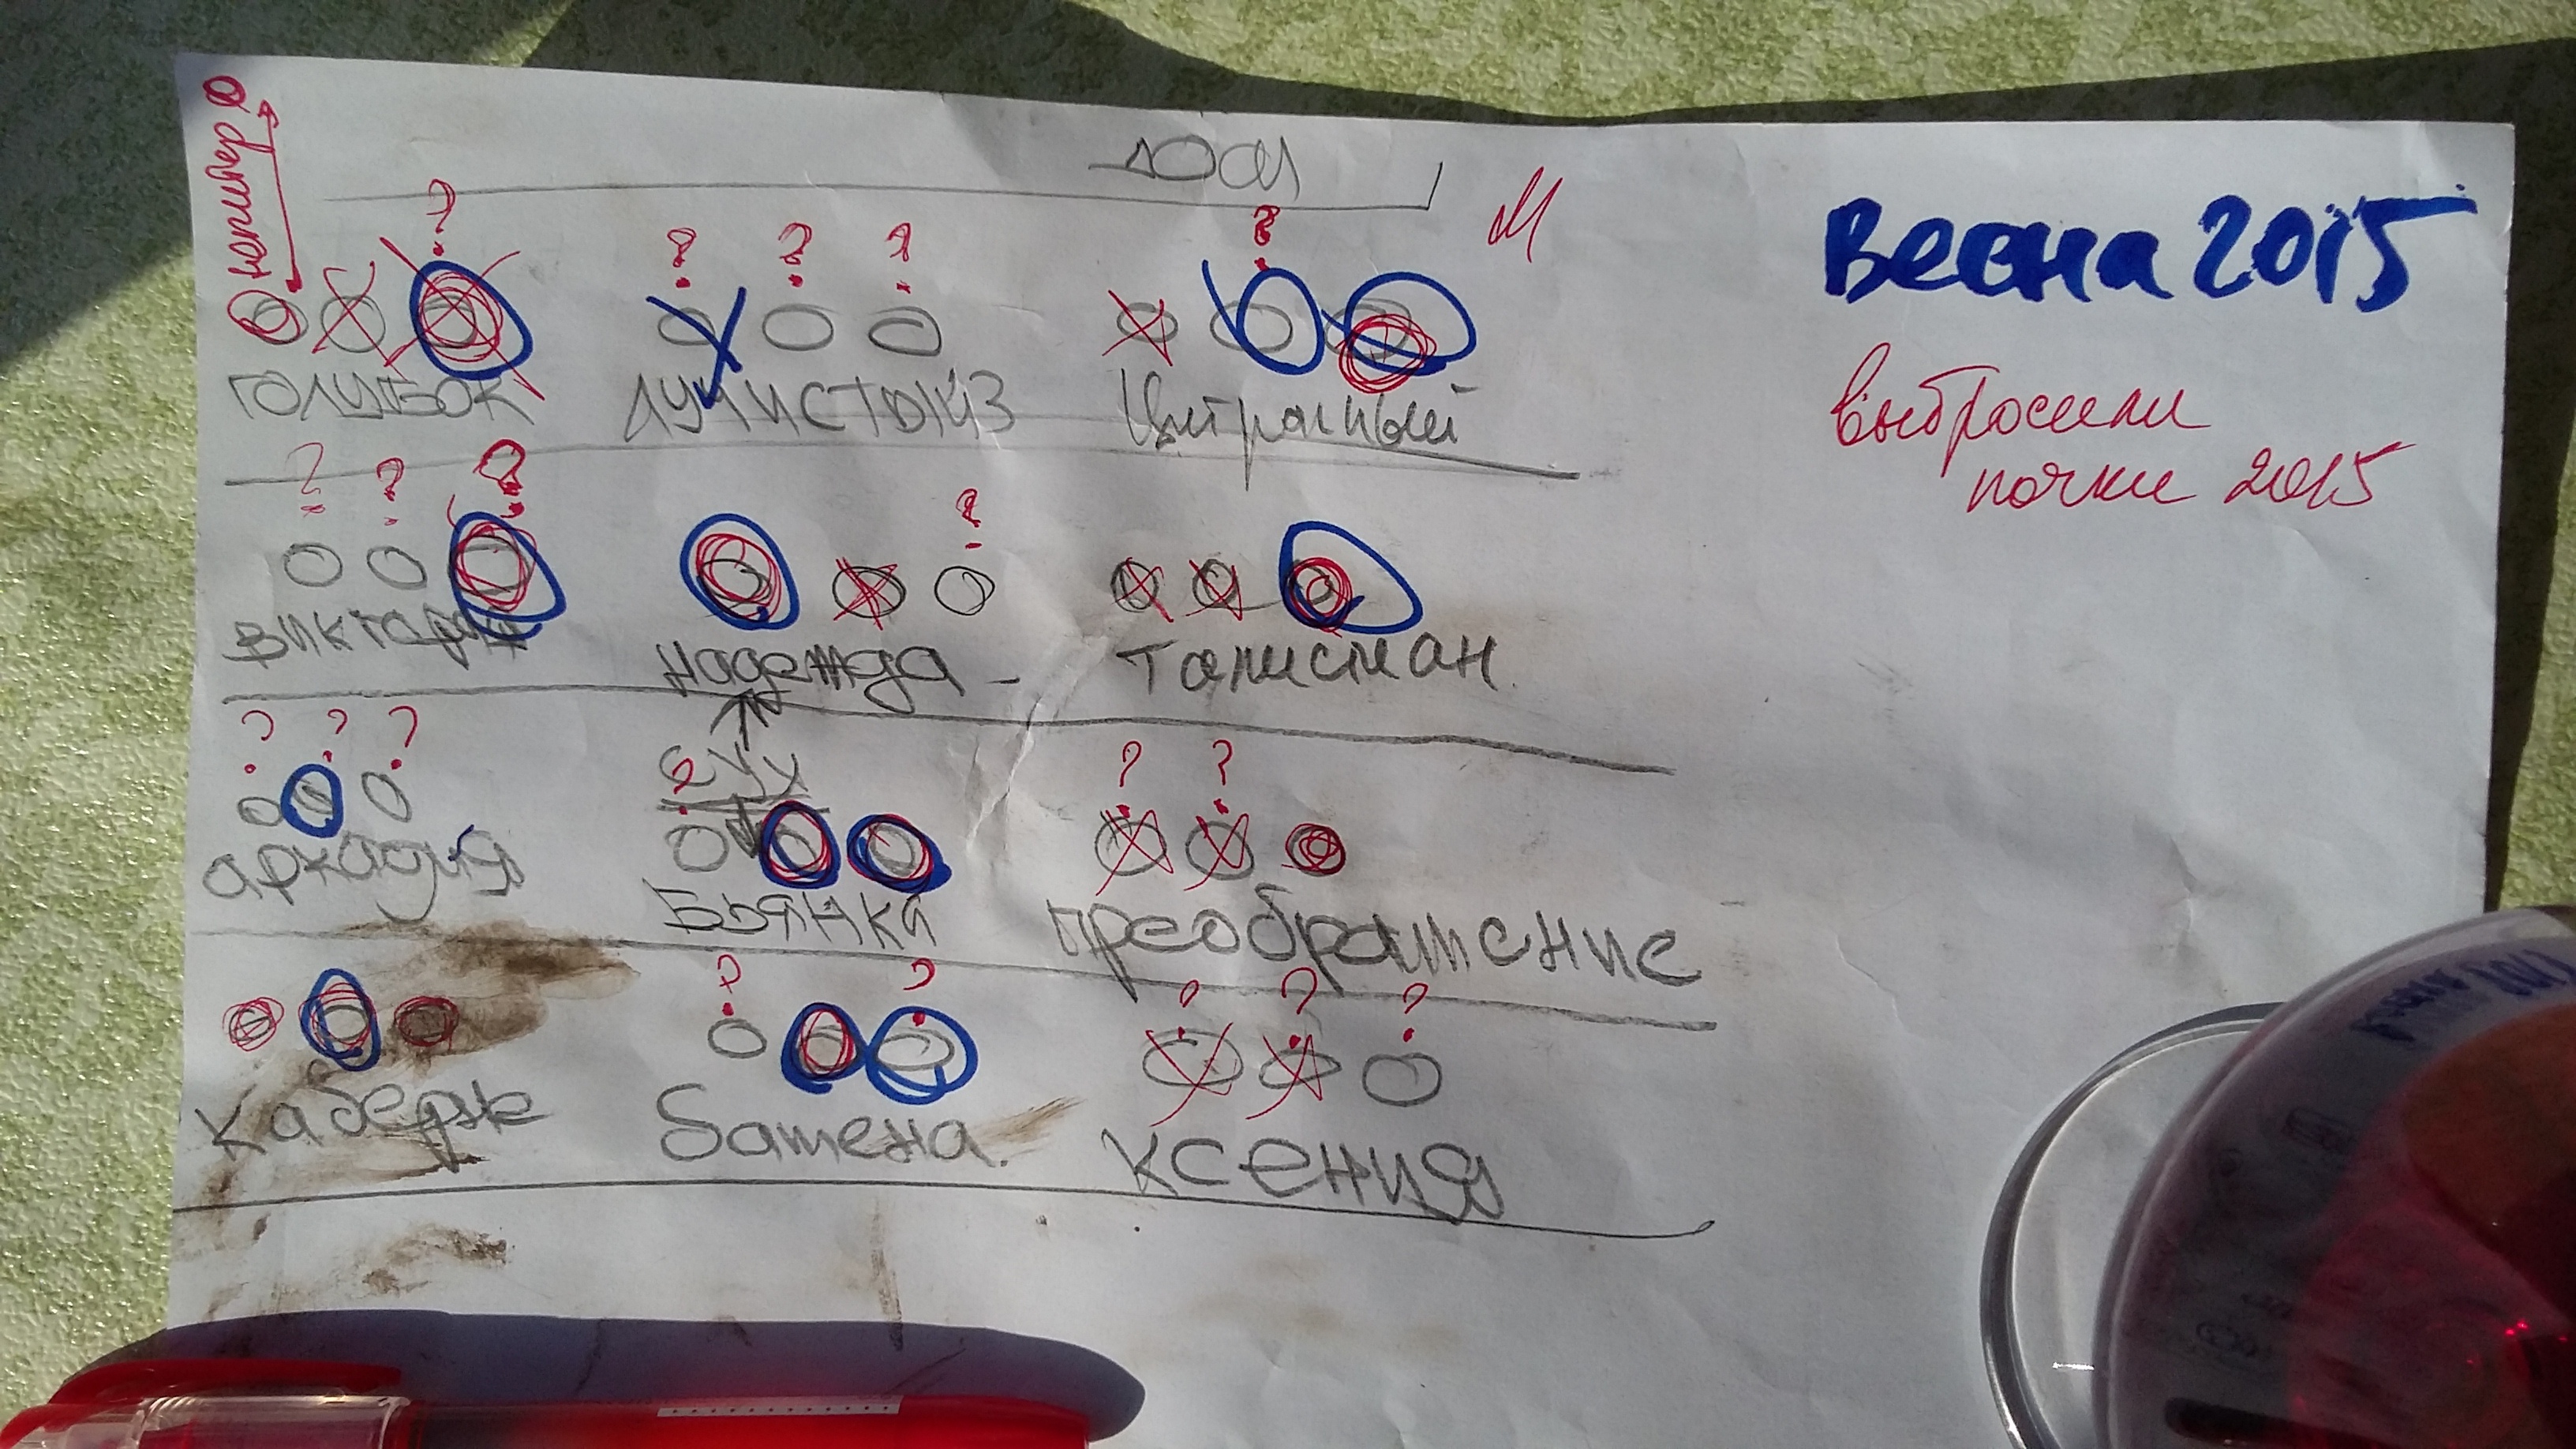 ДОМ
М
Весна 2015
выбросили
почки 2015
? ? ? ? ?
ГОЛУБОК ЛУЧИСТЫЙ З Цитронный
? ? ? ?
виктория надежда - Талисман.
? ? ? сух ? ? ?
аркадия БЬЯНКА преображение
? ? ? ? ?
каберне Батена. ксения